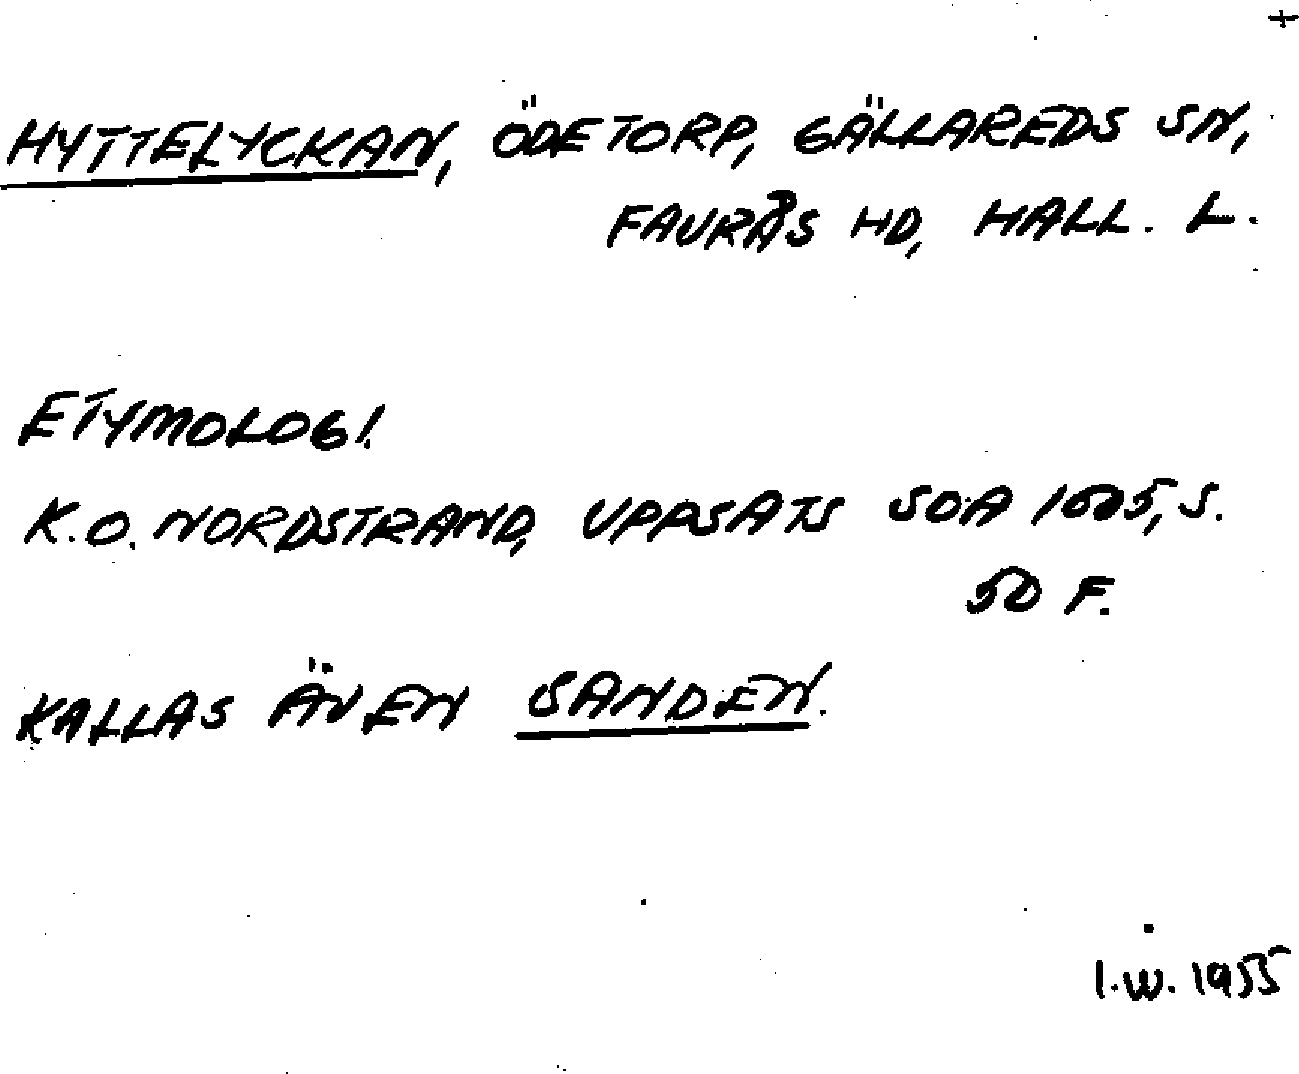 +
HYTTELYCKAN, ÖDETORP, GÄLLAREDS SN,
FAURÅS HD, HALL. L.
ETYMOLOGI.
K.O. NORDSTRAND, UPPSATS SOA 1605, S.
50 F.
KALLAS ÄVEN SANDEN.
I.W. 1955